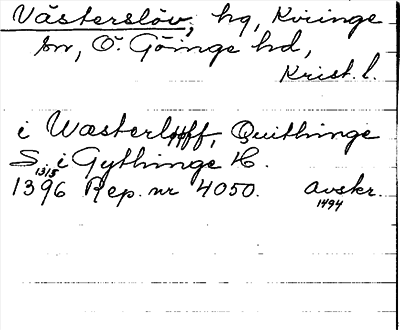 Västerslöv, hg, Kviinge
sn, Ö. Göinge hd,
Krist. l.
i Wæsterløff, Quithinge
S. i Gythinge H.
1315
1396 Rep. nr 4050. avskr.
1494